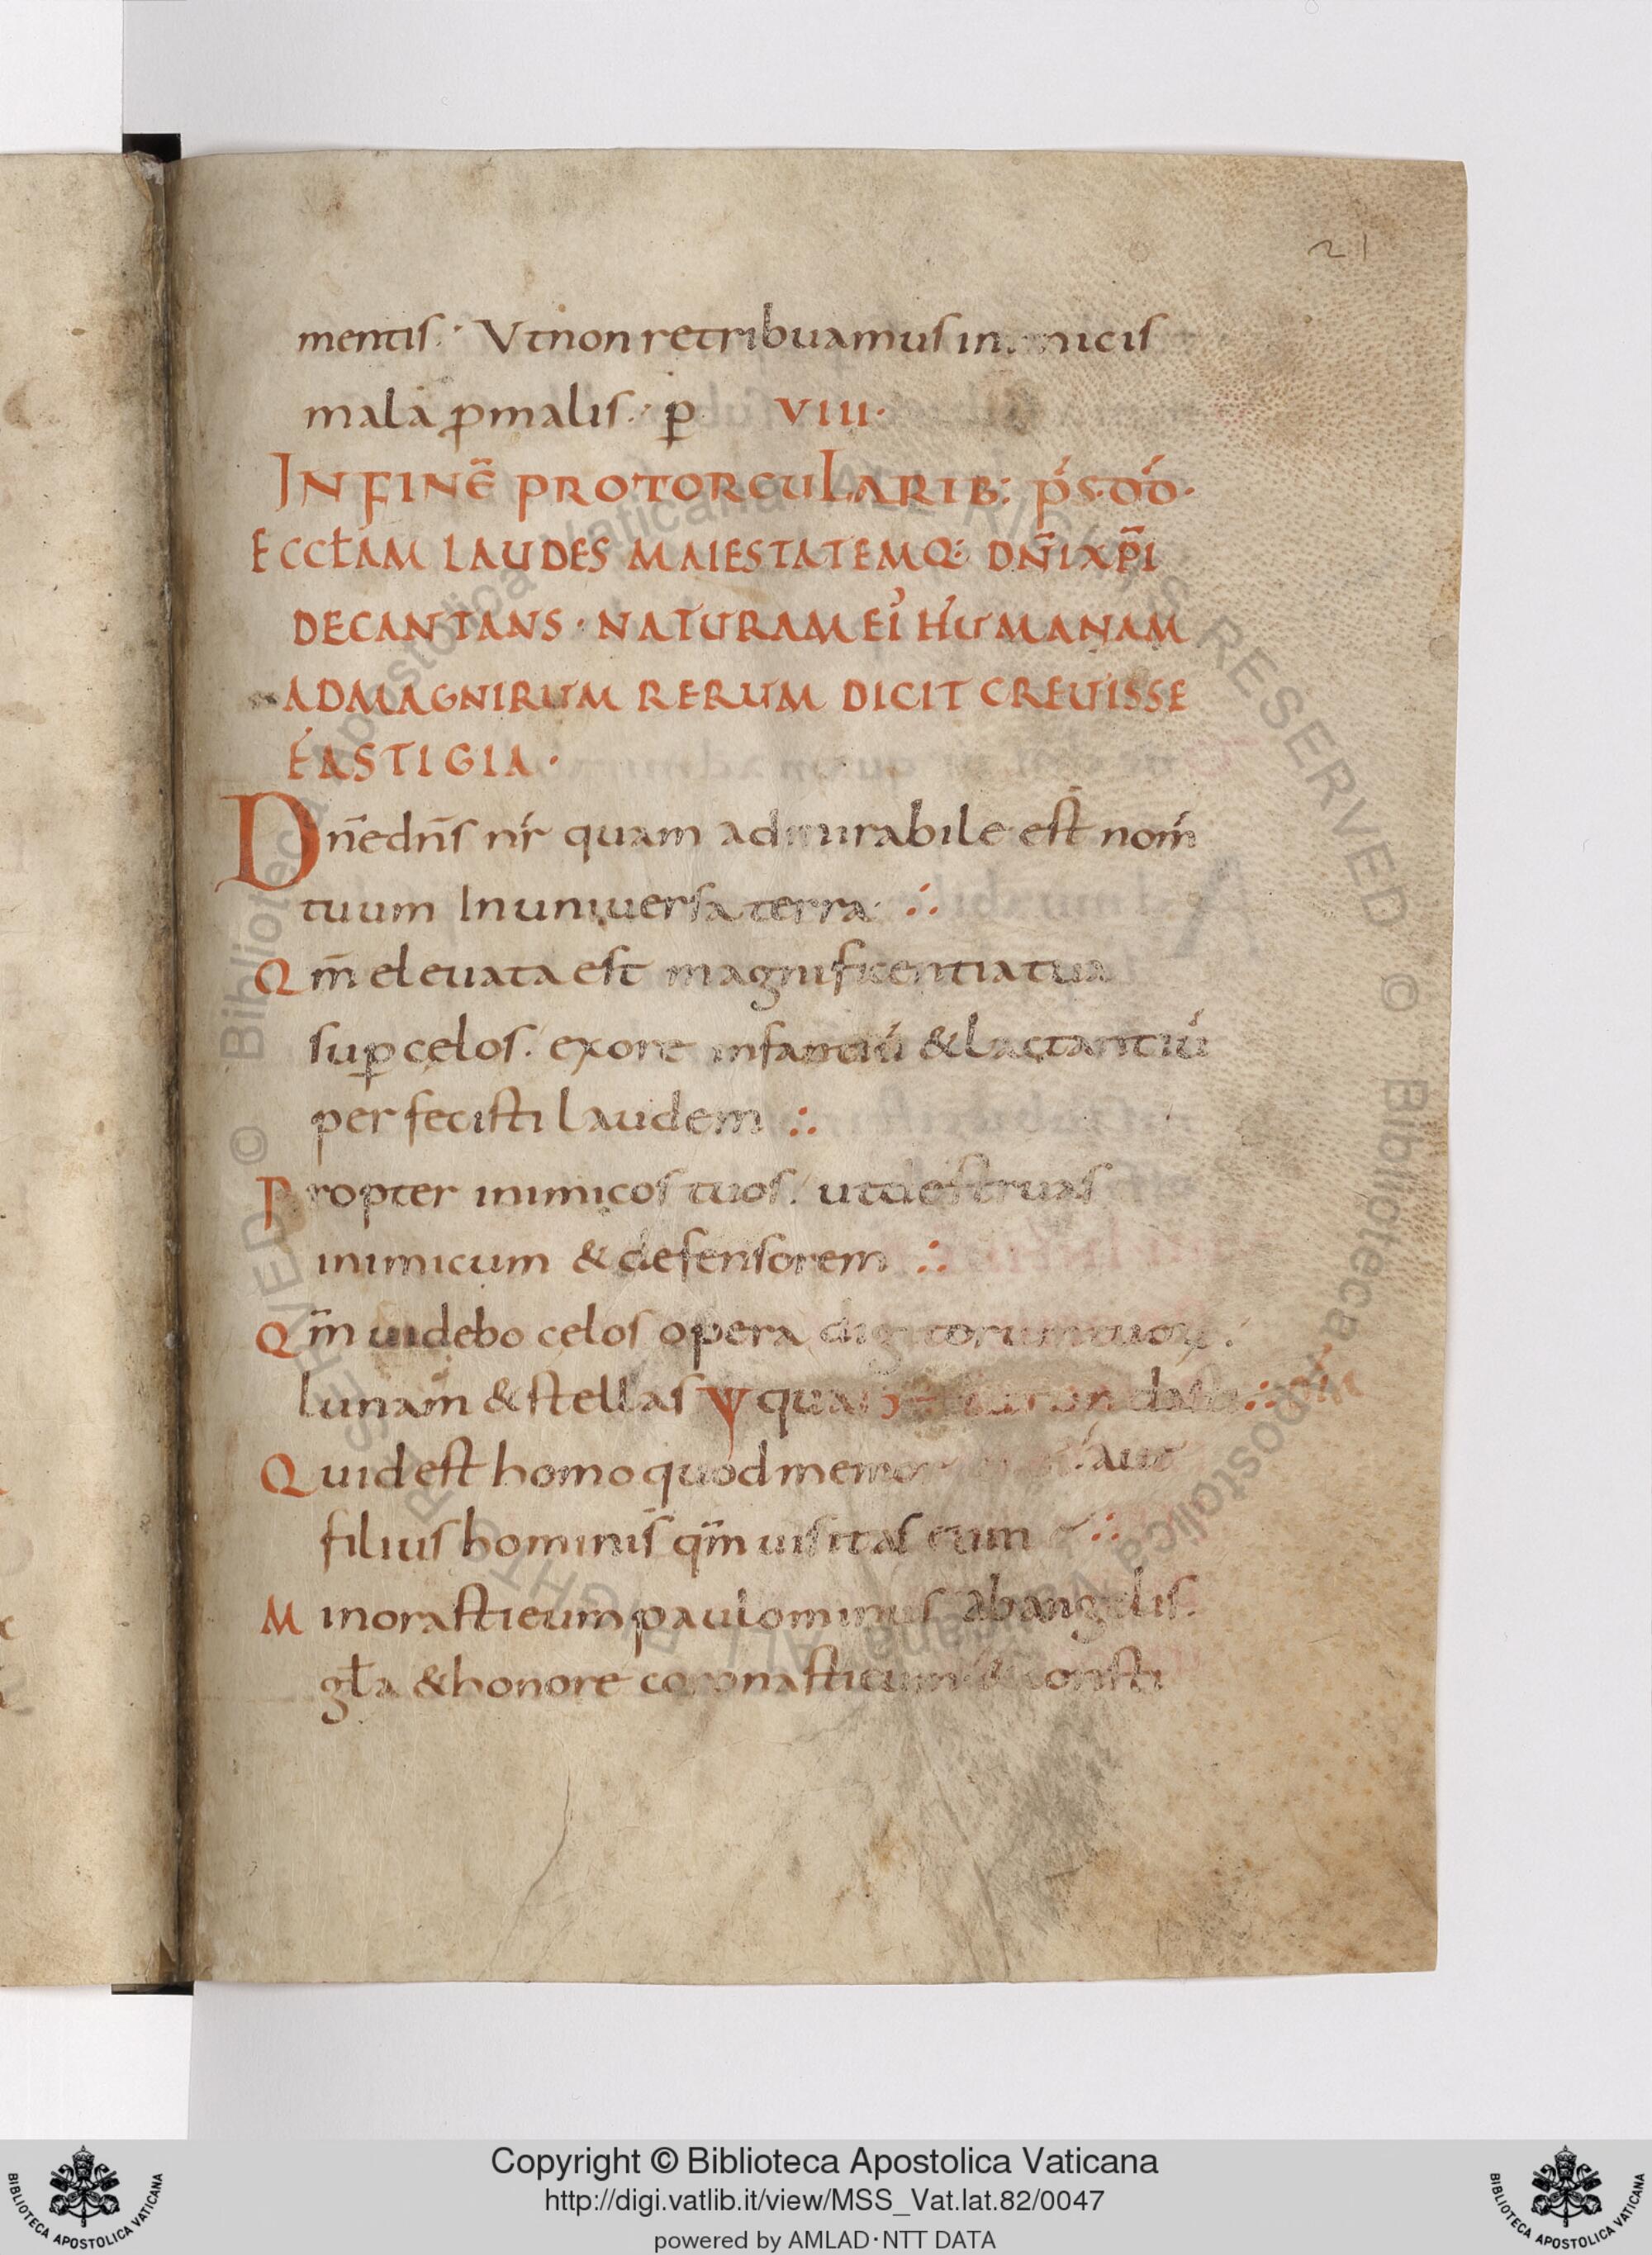 21
mentis. Ut non retribuamus inimicis
mala ꝓ malis. ꝑ VIII.
IN FINĒ PRO TORCULARIB: ps. dd.
ECCƚAM LAUDES MAIESTATEMQ: DN̄I XP̄I
DECANTANS. NATURAM EI᾽ HUMANAM
AD MAGNIRUM RERUM DICIT CREUISSE
FASTIGIA.
Dn̄e dn̄s nr quam admirabile est nom̄
tuum In uniuersa terra ∴
Qm̄ eleuata est magnificentia tua
suꝑ cęlos. ex ore infantiū & lactantiū
perfecisti laudem ∴
Propter inimicos tuos. ut destruas
inimicum & defensorem ∴
Qm̄ uidebo celos opera digitorum tuoꝝ.
lunam & stellas ψ
Quid est homo quod aut
filius hominis qm̄ uisitas eum ∴
Minorasti eum paulominus ab angelis.
gƚa & honore coronasti eum & consti
Copyright © Biblioteca Apostolica Vaticana
http://digi.vatlib.it/view/MSS_Vat.lat.82/0047
powered by AMLAD·NTT DATA
BIBLIOTECA APOSTOLICA VATICANA
BIBLIOTECA APOSTOLICA VATICANA